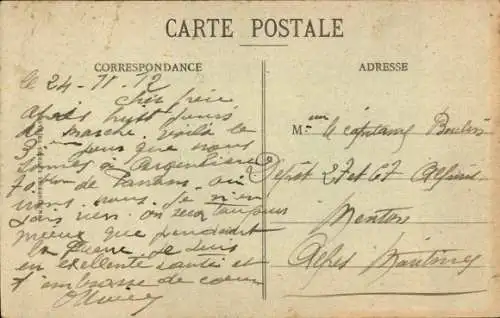 CARTE POSTALE
CORRESPONDANCE
ADRESSE
le 24-11-12
Cher frère
Après huit jours
de marche voilà le
3ème jour que nous
sommes à Argentière
de
nous. nous. Je n'en
sais rien. on sera toujours
mieux que pendant
la guerre. Je suis
en excellente santé et
t'embrasse de coeur
M. le capitaine
Dépôt 27 et 67 Alpins
Menton
Alpes Maritimes